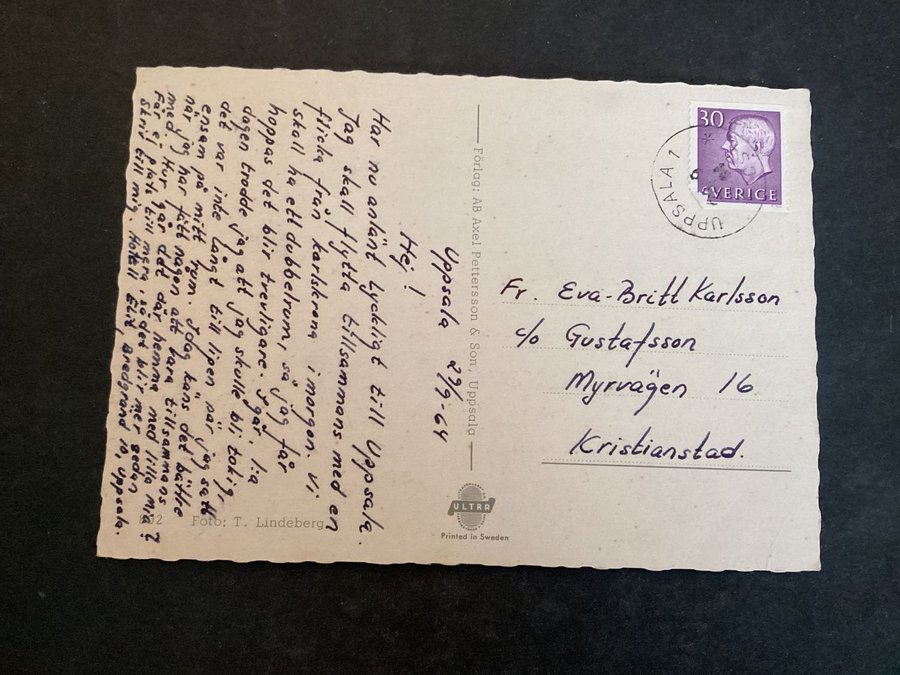 Uppsala 29/9-64
Hej!
Har nu anlänt lyckligt till Uppsala.
Jag skall flytta tillsammans med en
flicka från Karlskrona i morgon. Vi
skall ha ett dubbelrum, så jag får
hoppas det blir trevligare. Igår,
dagen trodde jag att jag skulle bli tokig,
det var inte långt till lipen när jag satt
ensam på mitt rum. Idag käns det bättre
när jag har fått någon att vara tillsammans
med. Hur går det där hemma med lilla mia?
Får ej plats till mera, så det blir mer sedan
Skriv till mig, Hotell Elit Bredgränd 10 Uppsala.
Foto: T. Lindeberg
Förlag: AB Axel Pettersson & Son, Uppsala
ULTRA
Printed in Sweden
30
SVERIGE
UPPSALA 1
Fr. Eva-Britt Karlsson
c/o Gustafsson
Myrvägen 16
Kristianstad.